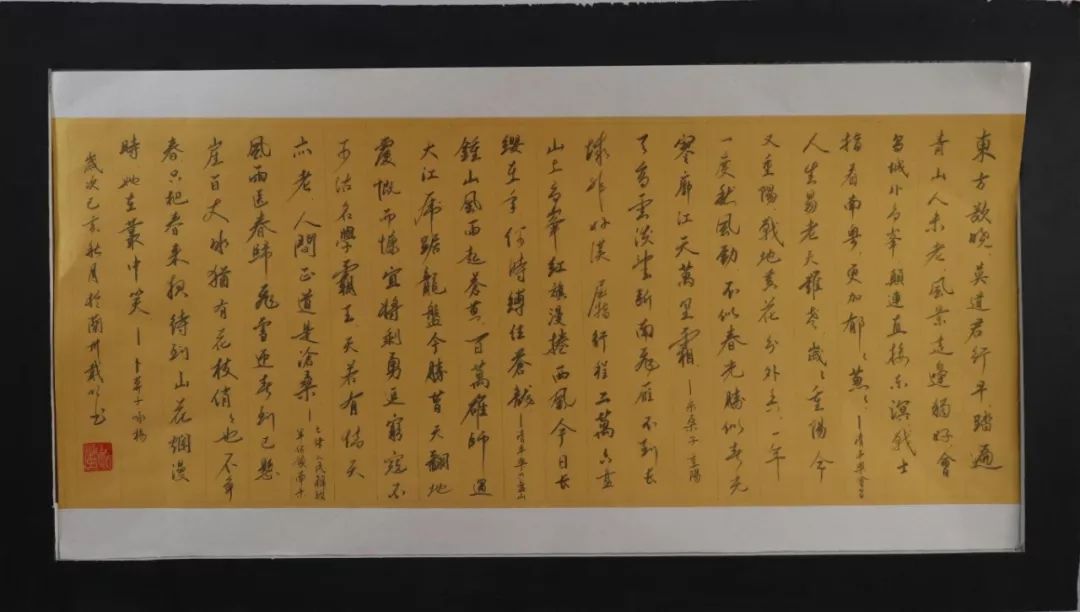 東方欲曉,莫道君行早踏遍
青山人未老,風景這邊獨好會
昌城外高峯顛連直接東溟戰士
指看南粵,更加郁々蔥々—清平樂會昌
人生易老天難老,歲々重陽今
又重陽戰地黃花分外香,一年
一度秋風勁,不似春光勝似春光
寥廓江天萬里霜—采桑子重陽
天高雲淡望斷南飛雁不到長
城非好漢 屈指行程二萬六盤
山上高峯紅旗漫捲西風今日長
纓在手何時縛住蒼龍—清平樂六盤山
鍾山風雨起蒼黃,百萬雄師過
大江虎踞龍盤今勝昔天翻地
覆慨而慷宜將剩勇追窮寇不
可沽名學霸王天若有情天
亦老,人間正道是滄桑—七律人民解放
軍佔領南京
風雨送春歸飛雪迎春到已懸
崖百丈冰猶有花枝俏々也不爭
春只把春來報待到山花爛漫
時她在叢中笑—卜算子咏梅
歲次己亥秋月於蘭州